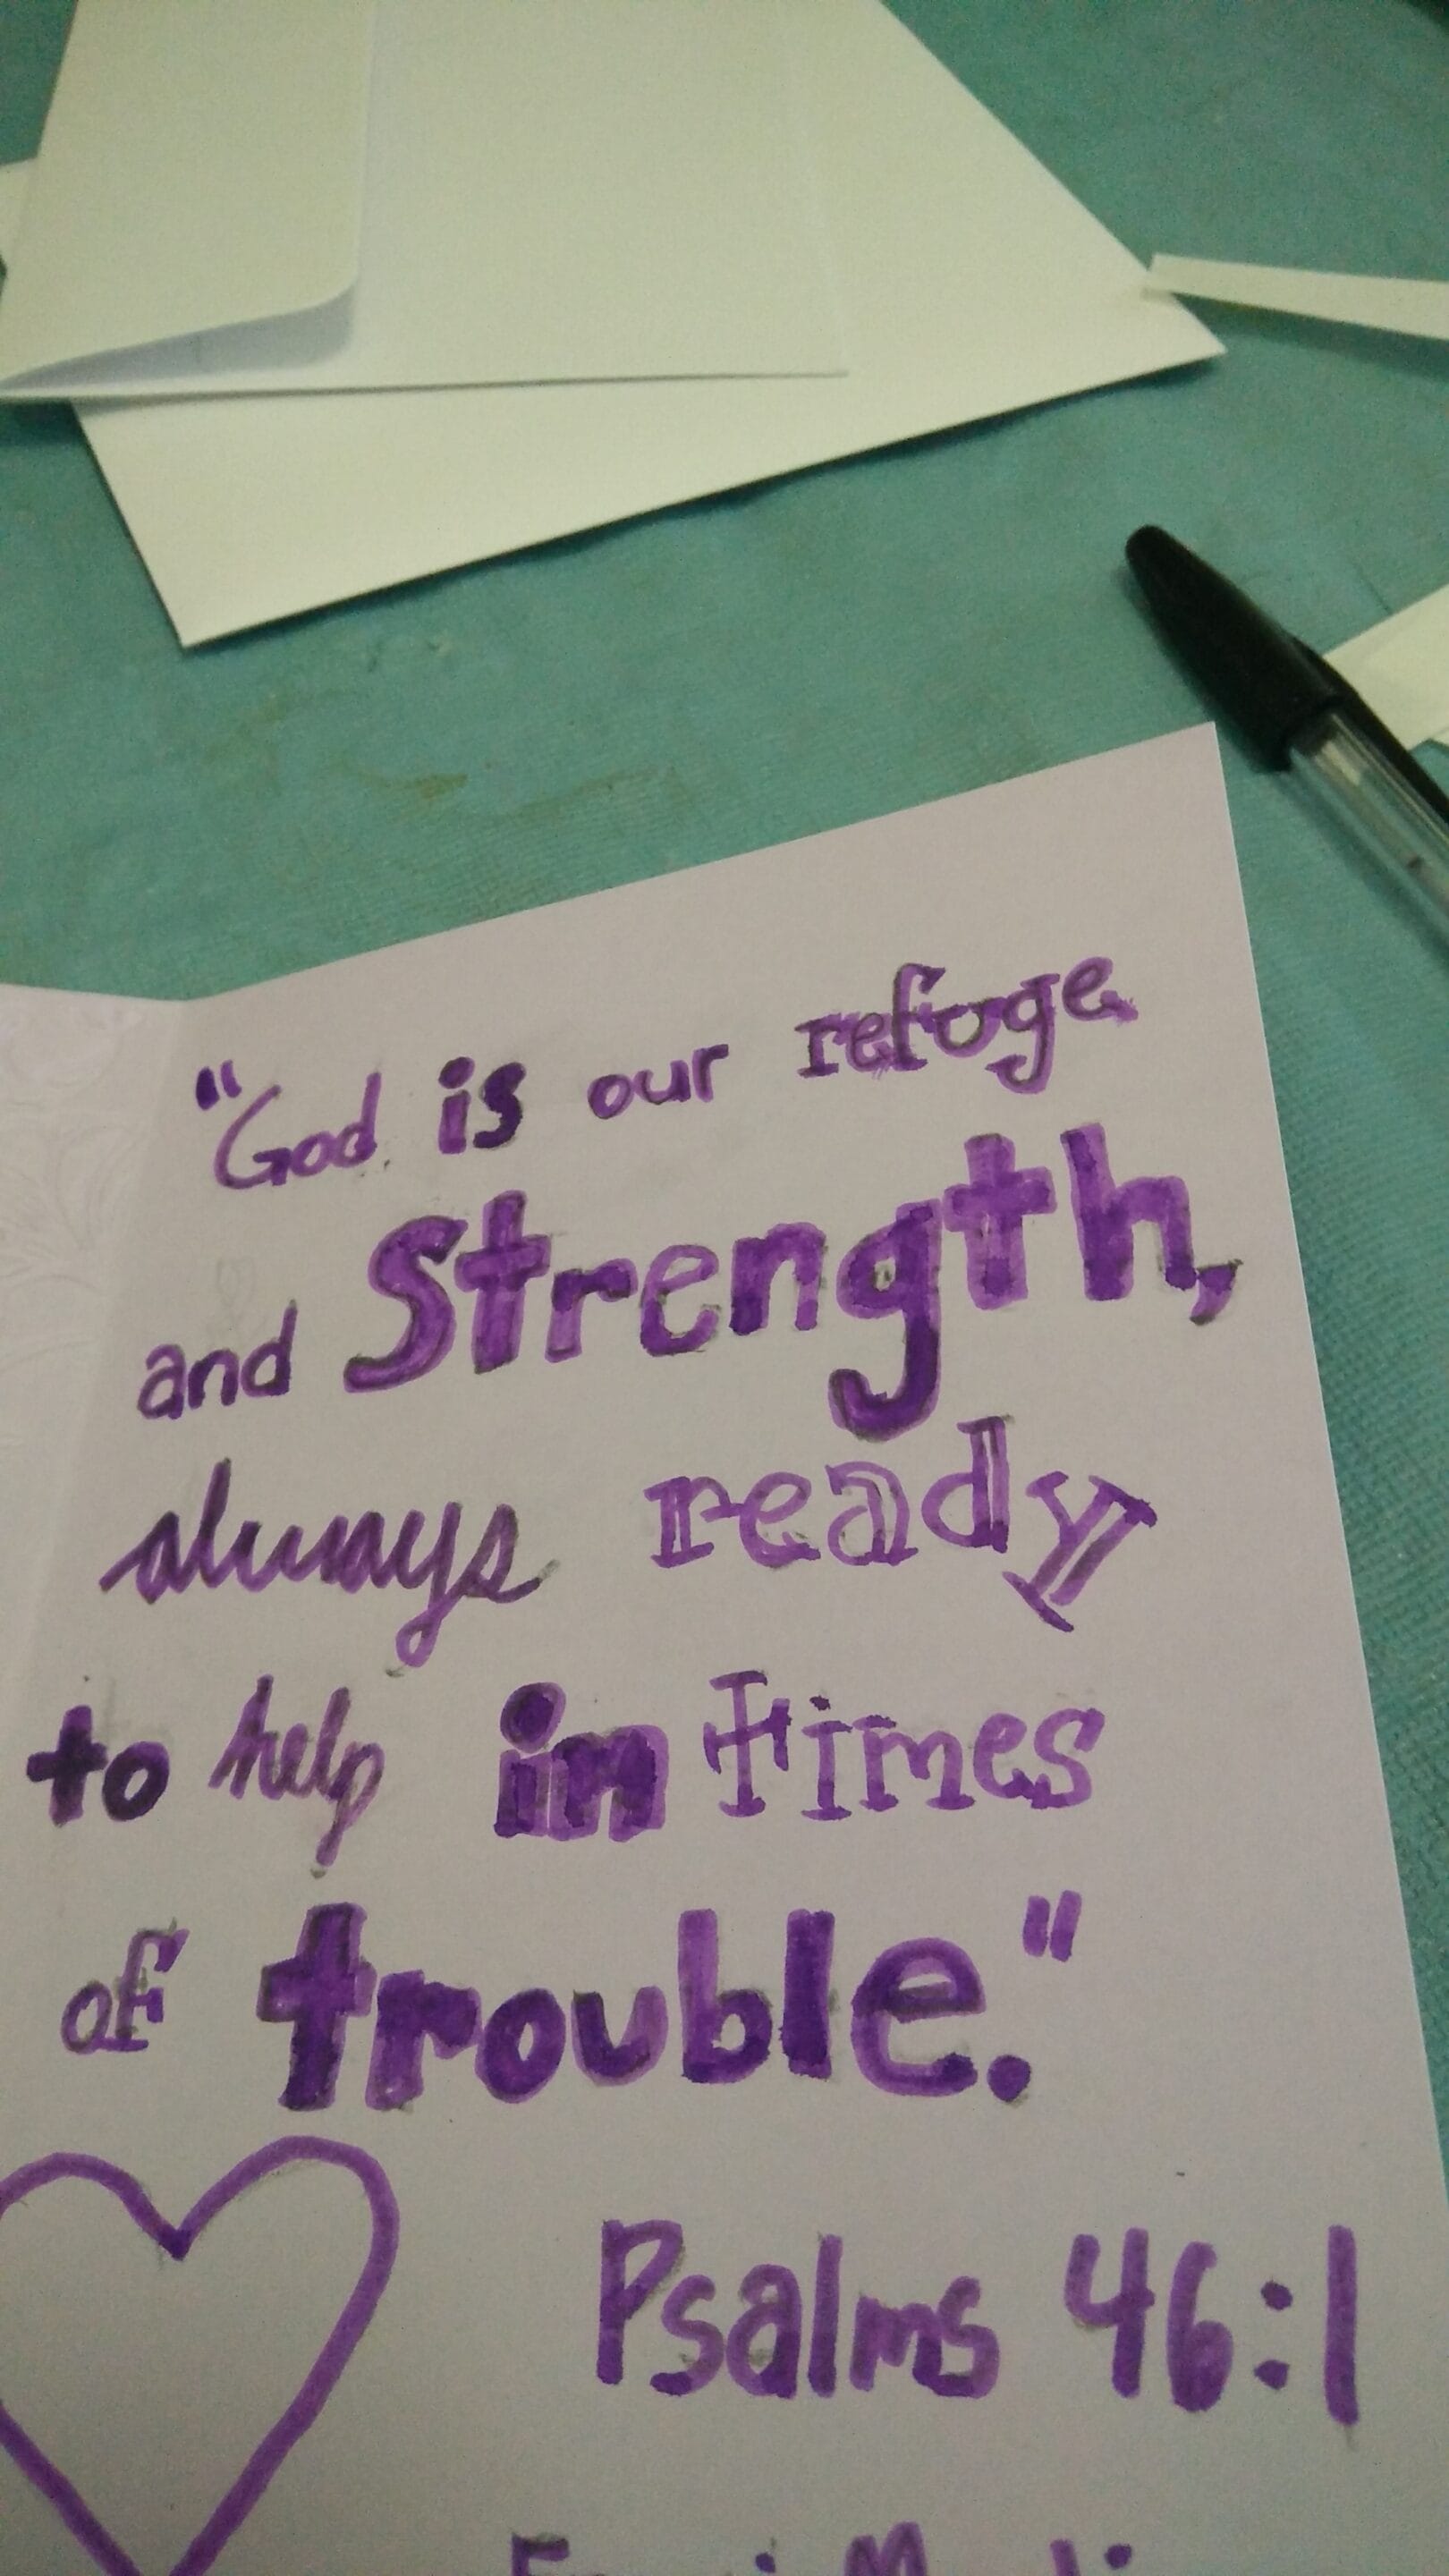 "God is our refuge
and Strength,
always ready
to help in times
of trouble."
Psalms 46:1